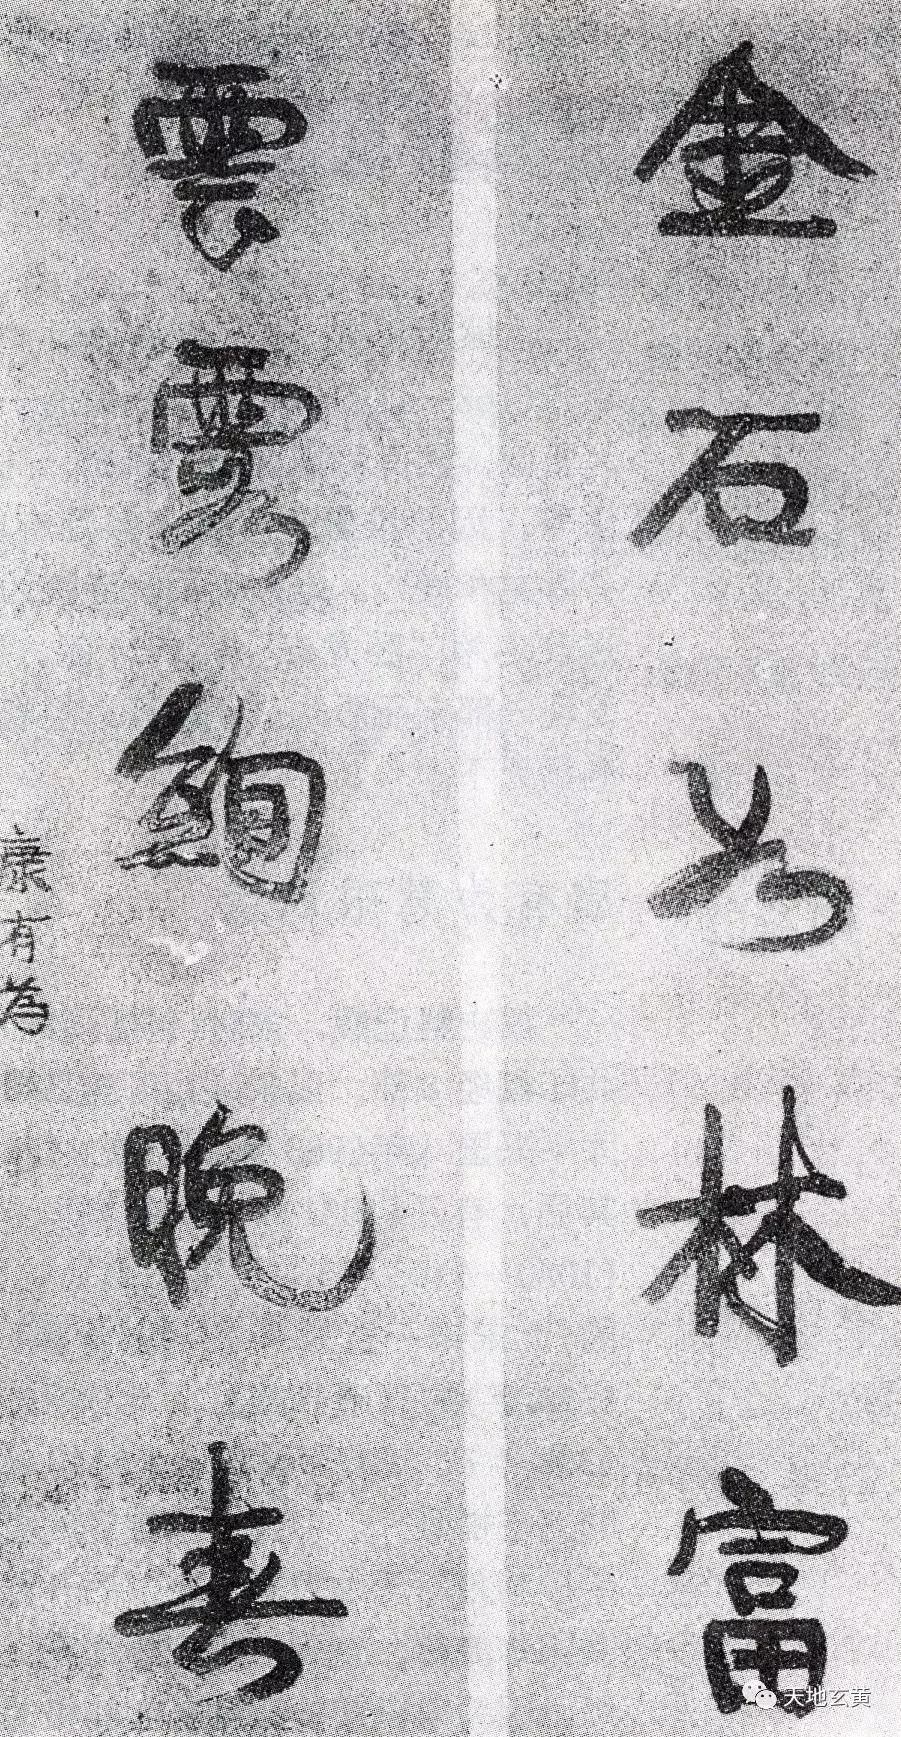 金石林富
雲霞絢晚春
康有為
天地玄黄